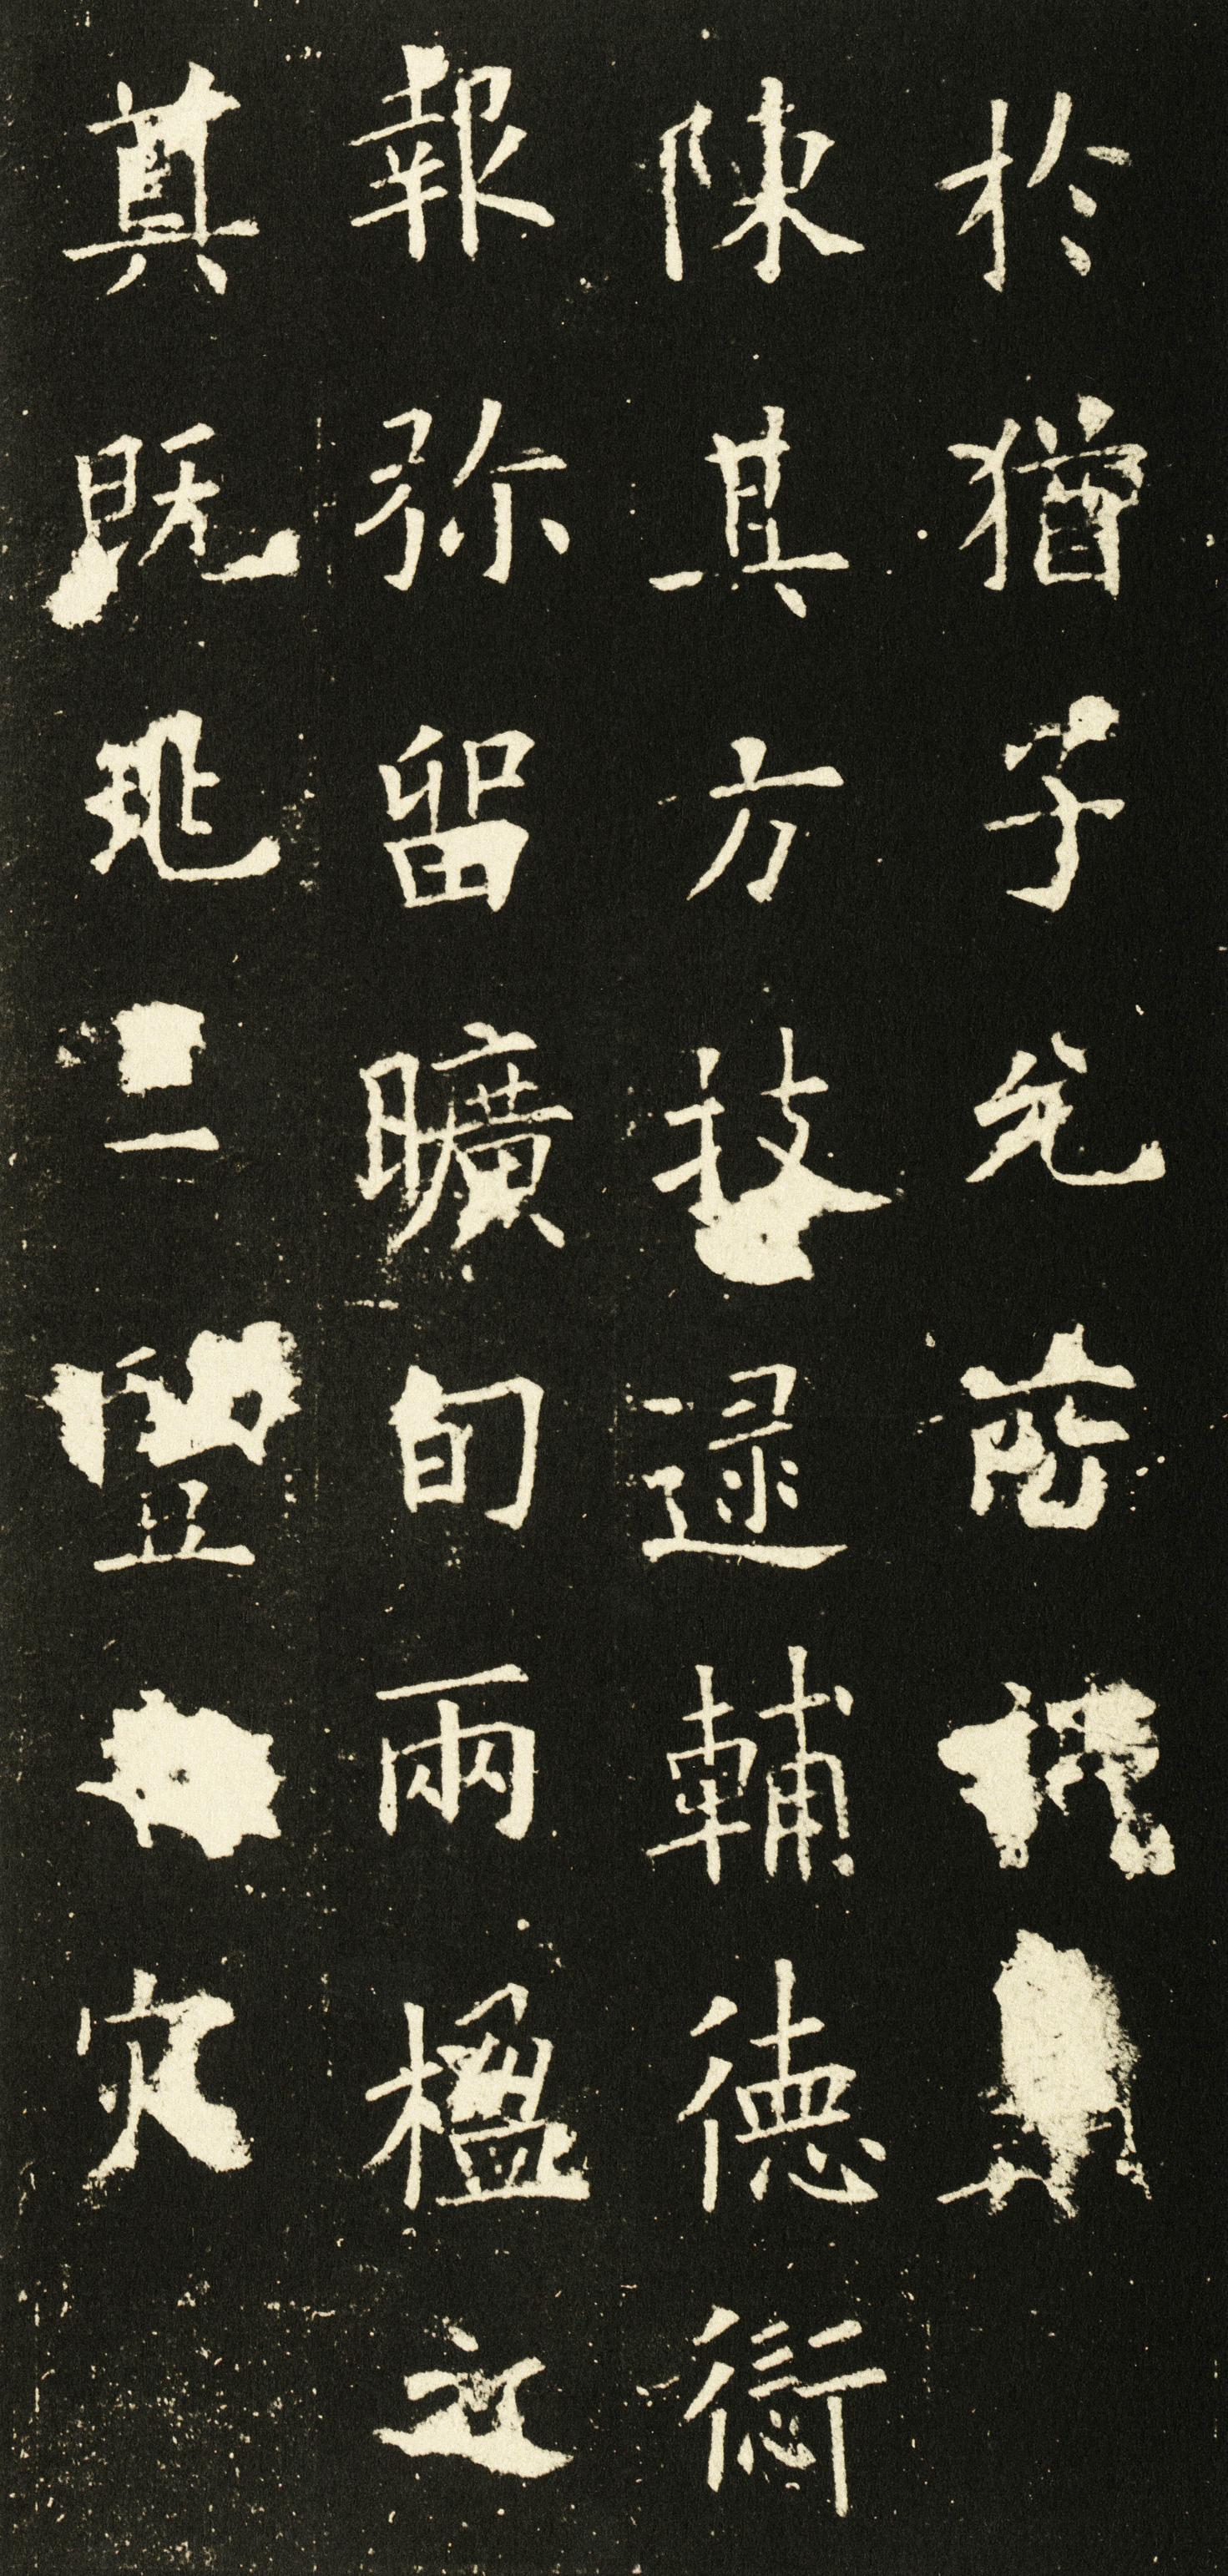 於猶子允
陳其方技逯輔德愆
報弥留曠旬兩楹之
奠既兆二豎灾